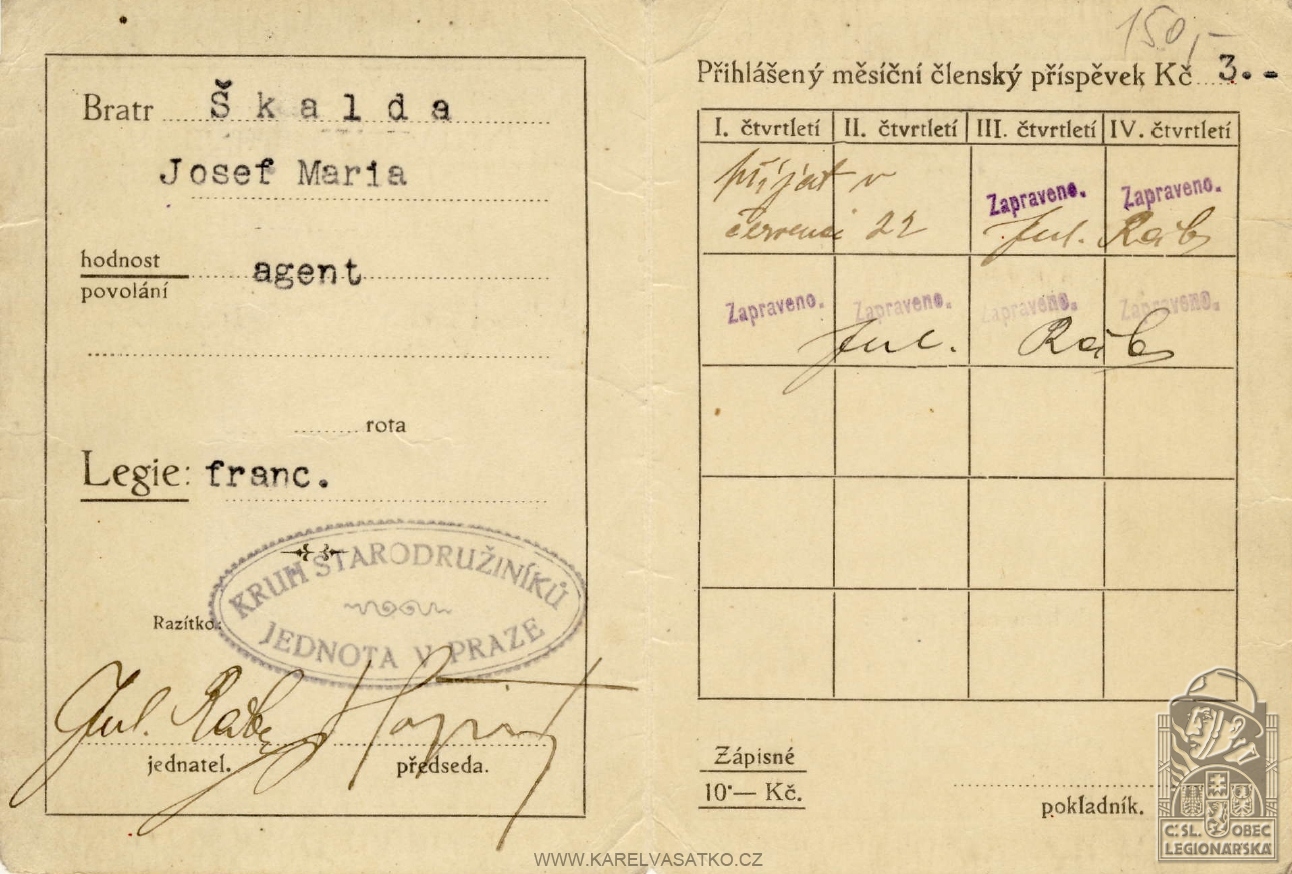 Bratr Škalda
Josef Maria
hodnost
povolání
agent
rota
Legie: franc.
KRUH STARODRUŽINÍKŮ
JEDNOTA V PRAZE
Razítko:
Jul. Ráb
jednatel.
předseda.
150,-
Přihlášený měsíční členský příspěvek Kč 3.-
I. čtvrtletí II. čtvrtletí III. čtvrtletí IV. čtvrtletí
přijat v
červenci 22
Zapraveno. Zapraveno.
Jul. Ráb
Zapraveno. Zapraveno. Zapraveno. Zapraveno.
Jul. Ráb
Zápisné
10·— Kč.
pokladník.
Č.SL. OBEC
LEGIONÁŘSKÁ
WWW.KARELVASATKO.CZ